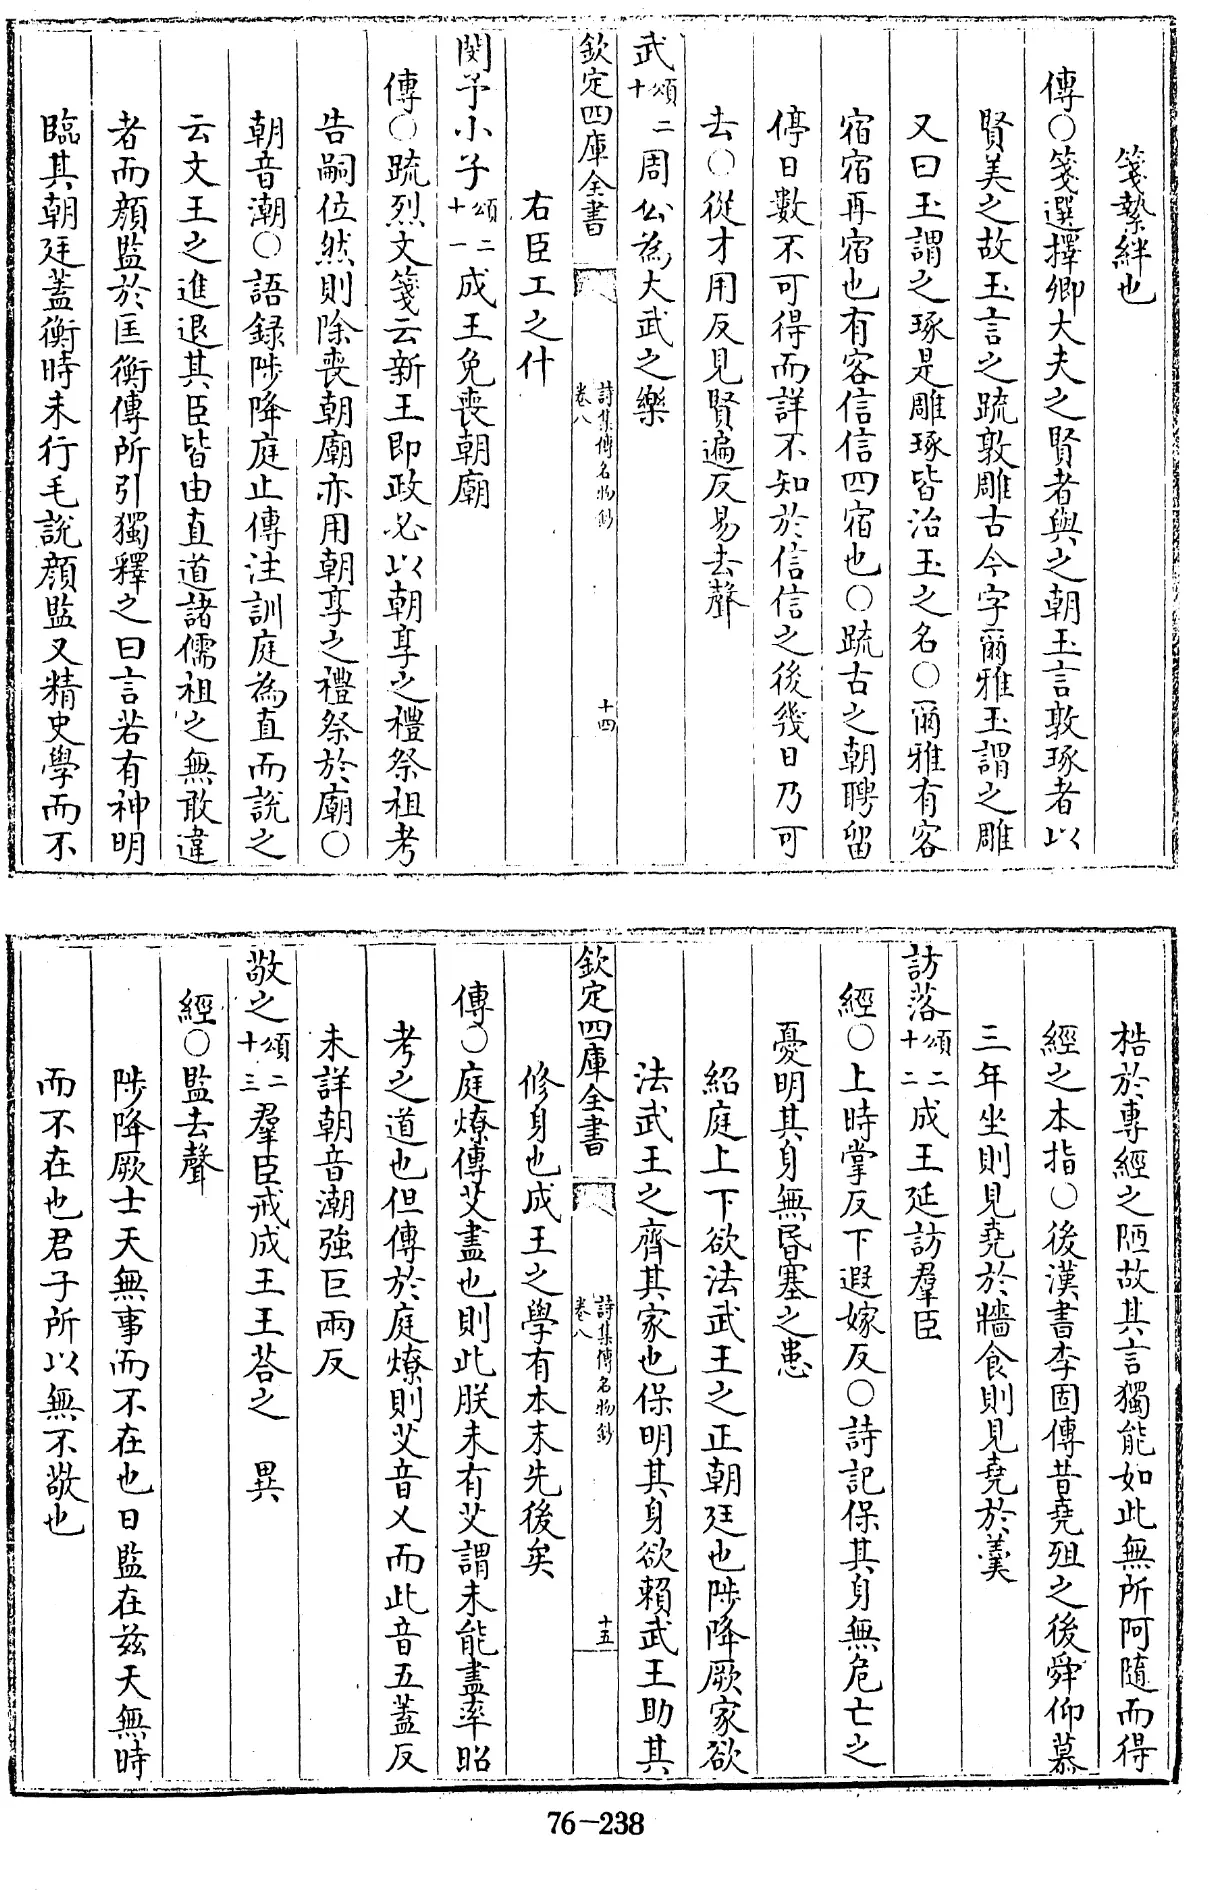 箋縶絆也
傳○箋選擇卿大夫之賢者與之朝玉言敦琢者以
賢美之故玉言之疏敦雕古今字爾雅玉謂之雕
又曰玉謂之琢是雕琢皆治玉之名○爾雅有客
宿宿再宿也有客信信四宿也○疏古之朝聘留
停日數不可得而詳不知於信信之後幾日乃可
去○從才用反見賢遍反易去聲
武頌二十周公為大武之樂
欽定四庫全書 詩集傳名物鈔 卷八 十四
右臣工之什
閔予小子頌二十一成王免喪朝廟
傳○疏烈文箋云新王即政必以朝享之禮祭祖考
告嗣位然則除喪朝廟亦用朝享之禮祭於廟○
朝音潮○語録陟降庭止傳注訓庭為直而說之
云文王之進退其臣皆由直道諸儒祖之無敢違
者而顔監於匡衡傳所引獨釋之曰言若有神明
臨其朝廷蓋衡時未行毛説顔監又精史學而不
梏於專經之陋故其言獨能如此無所阿隨而得
經之本指○後漢書李固傳昔堯殂之後舜仰慕
三年坐則見堯於牆食則見堯於羹
訪落頌二十二成王延訪羣臣
經○上時掌反下遐嫁反○詩記保其身無危亡之
憂明其身無昏塞之患
紹庭上下欲法武王之正朝廷也陟降厥家欲
法武王之齊其家也保明其身欲賴武王助其
欽定四庫全書 詩集傳名物鈔 卷八 十五
修身也成王之學有本末先後矣
傳○庭燎傳艾盡也則此朕未有艾謂未能盡率昭
考之道也但傳於庭燎則艾音乂而此音五蓋反
未詳朝音潮強巨兩反
敬之頌二十三羣臣戒成王王荅之 異
經○監去聲
陟降厥士天無事而不在也日監在兹天無時
而不在也君子所以無不敬也
76-238